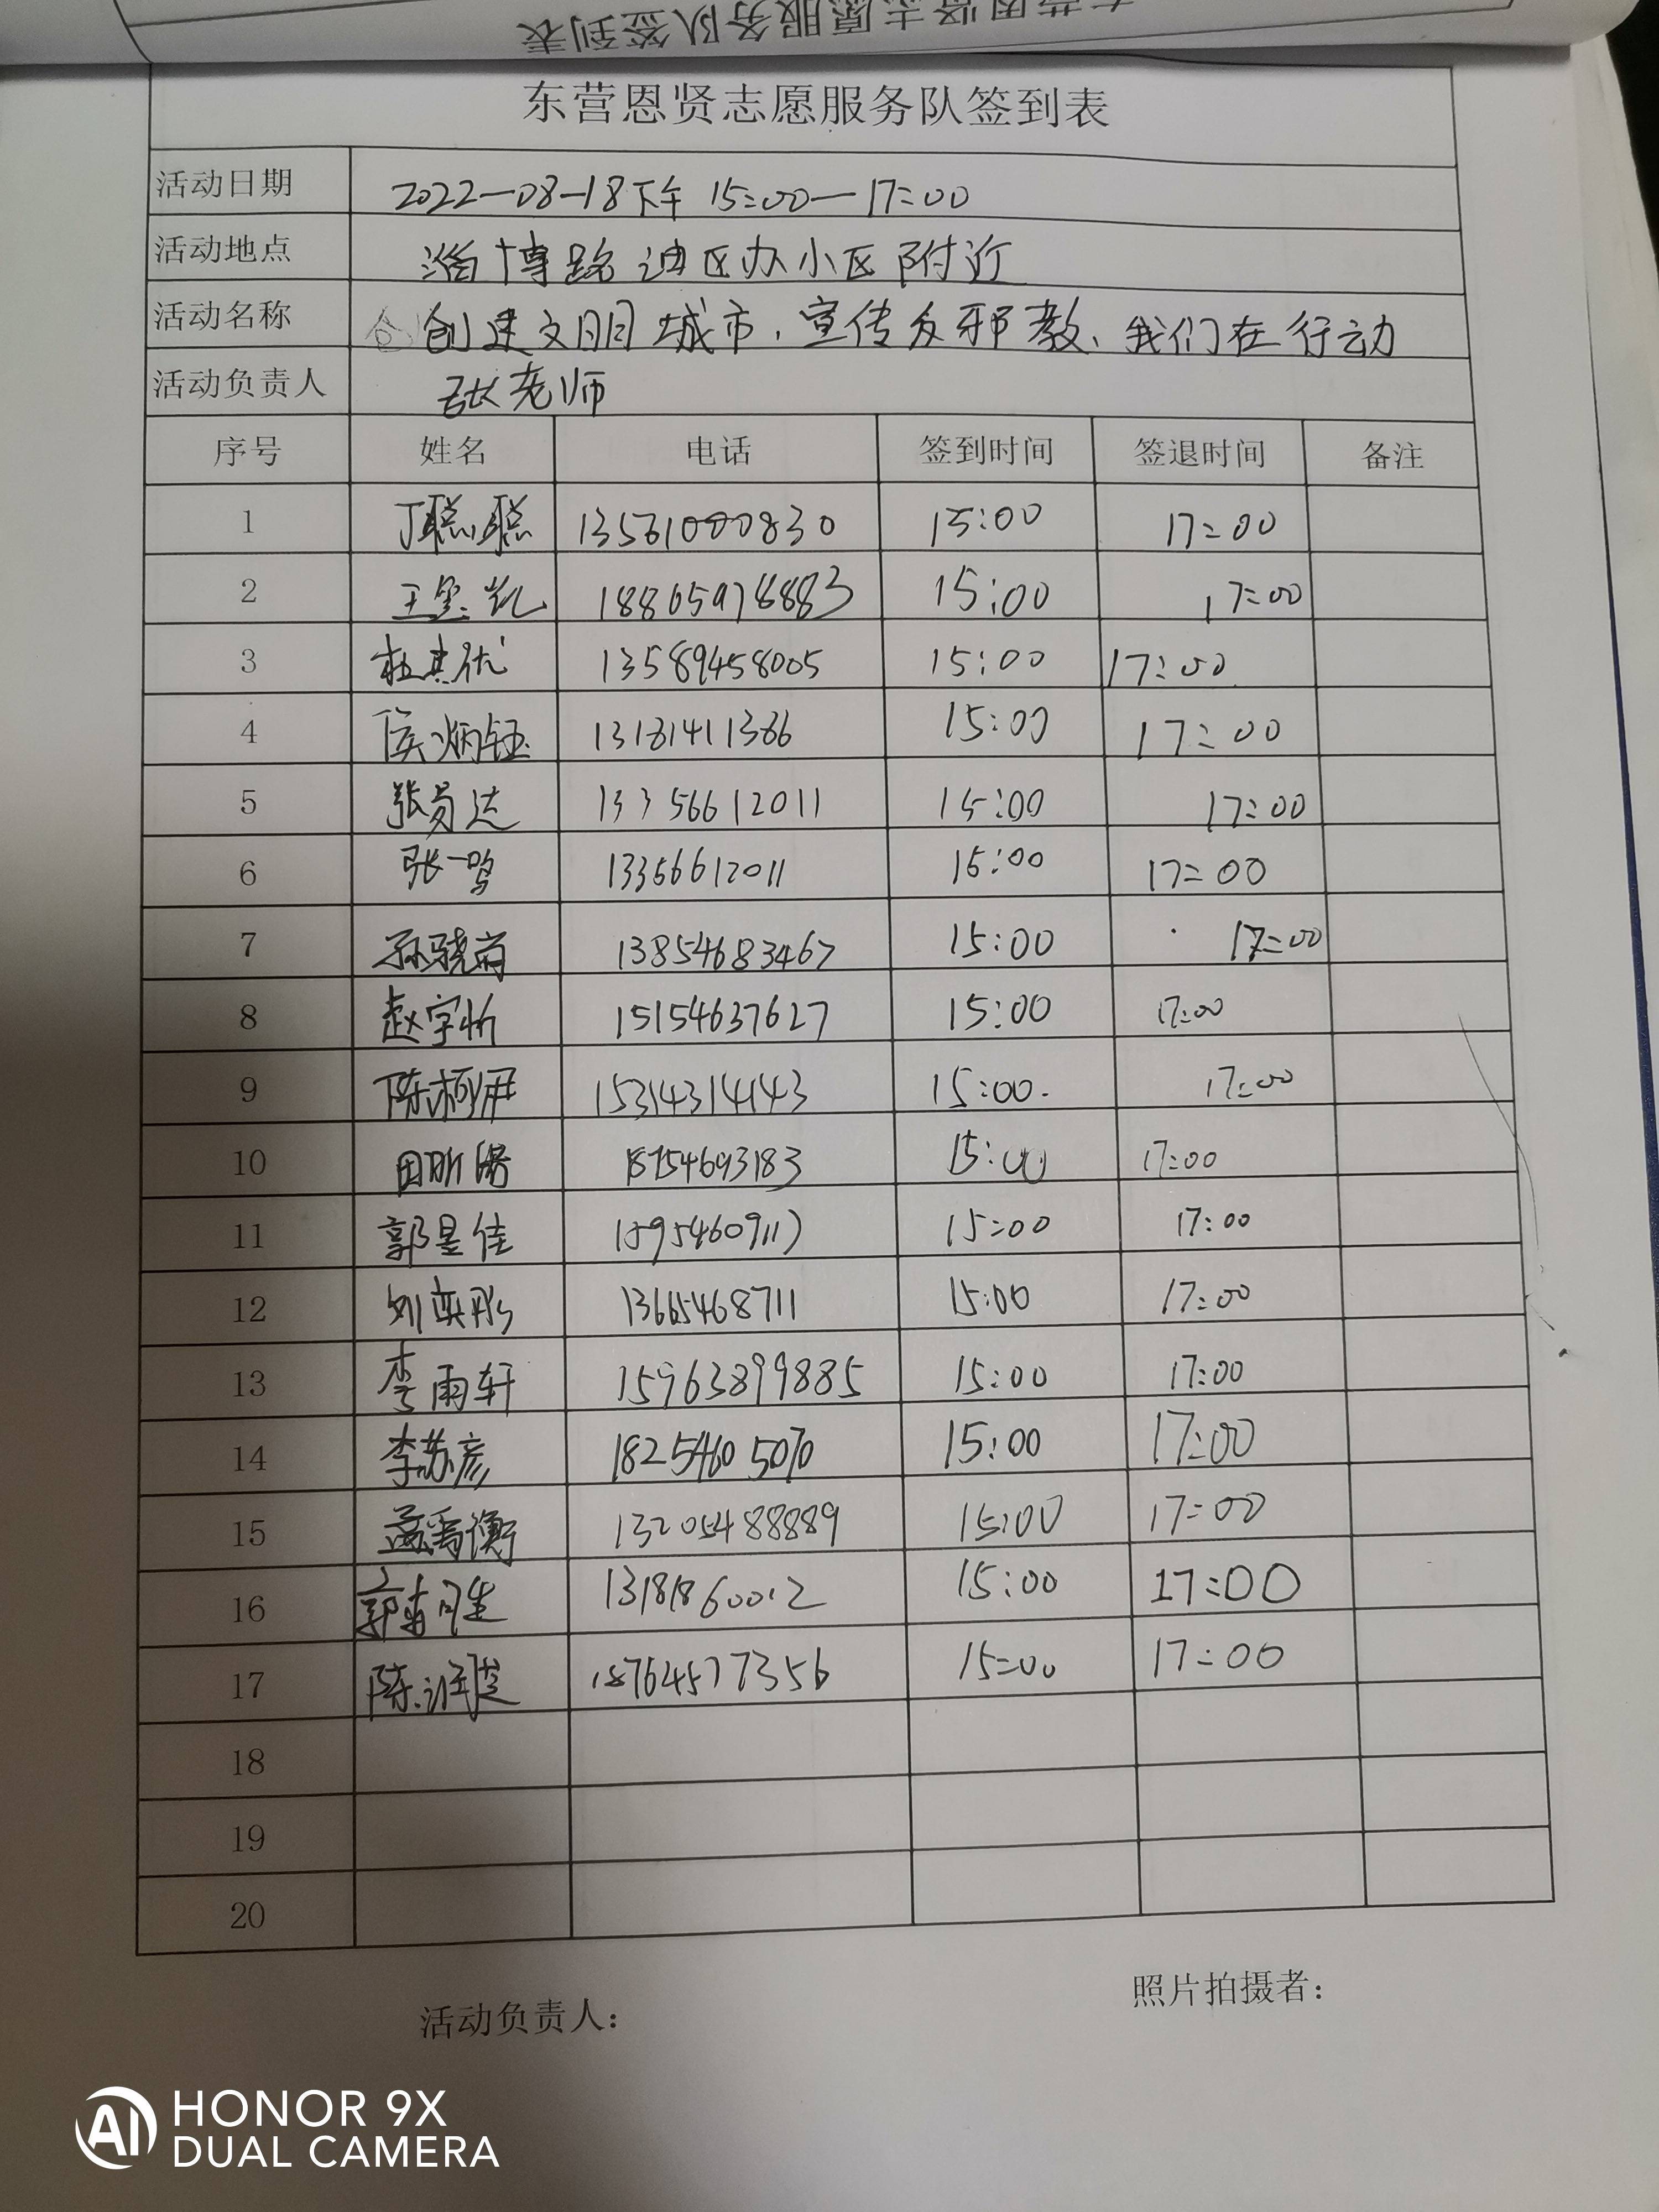 东营恩贤志愿服务队签到表
东营恩贤志愿服务队签到表
活动日期 2022-08-18下午 15:00—17:00
活动地点 潍博路 区办小区附近
活动名称 创建文明城市,宣传反邪教、我们在行动
活动负责人 张老师
序号 姓名 电话 签到时间 签退时间 备注
1 丁聪聪 13561000830 15:00 17:00
2 王 凯 18865978883 15:00 17:00
3 杜其优 13589458005 15:00 17:00
4 侯炳钰 13181411366 15:00 17:00
5 张易达 13356612011 15:00 17:00
6 张一鸣 13356612011 15:00 17:00
7 孙骁 13854683467 15:00 17:00
8 赵宇忻 15154637627 15:00 17:00
9 陈柯 15314314143 15:00. 17:00
10 田昕 18754693183 15:00 17:00
11 郭昱佳 15:00 17:00
12 刘奕彤 13665468711 15:00 17:00
13 李雨轩 15963899885 15:00 17:00
14 李苏彦 18254605070 15:00 17:00
15 孟禹衡 13205488889 15:00 17:00
16 郭 13181860012 15:00 17:00
17 陈润 18764577356 15:00 17:00
18
19
20
活动负责人: 照片拍摄者:
AI HONOR 9X
DUAL CAMERA